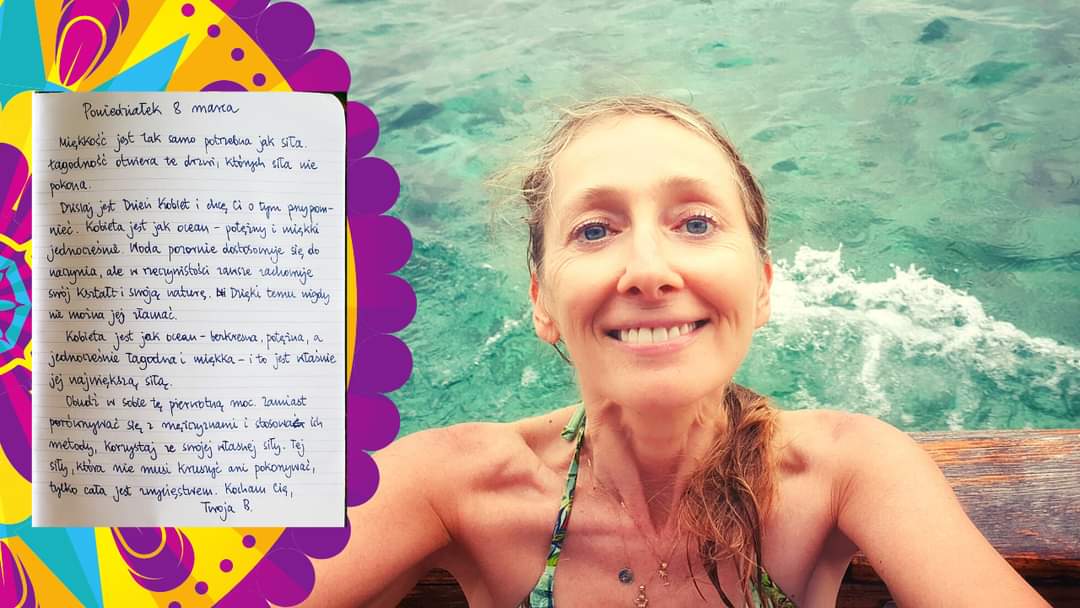 Poniedziałek 8 marca
Miękkość jest tak samo potrzebna jak siła.
Łagodność otwiera te drzwi, których siła nie
pokona.
Dzisiaj jest Dzień Kobiet i chcę Ci o tym przypom-
nieć. Kobieta jest jak ocean – potężny i miękki
jednocześnie. Woda pozornie dostosowuje się do
naczynia, ale w rzeczywistości zawsze zachowuje
swój kształt i swoją naturę. Dzięki temu nigdy
nie można jej złamać.
Kobieta jest jak ocean – bezkresna, potężna, a
jednocześnie łagodna i miękka – i to jest właśnie
jej największą siłą.
Obudź w sobie tę pierwotną moc. Zamiast
porównywać się z mężczyznami i stosować ich
metody, korzystaj ze swojej własnej siły. Tej
siły, która nie musi kruszyć ani pokonywać,
tylko cała jest zwycięstwem. Kocham Cię,
Twoja B.